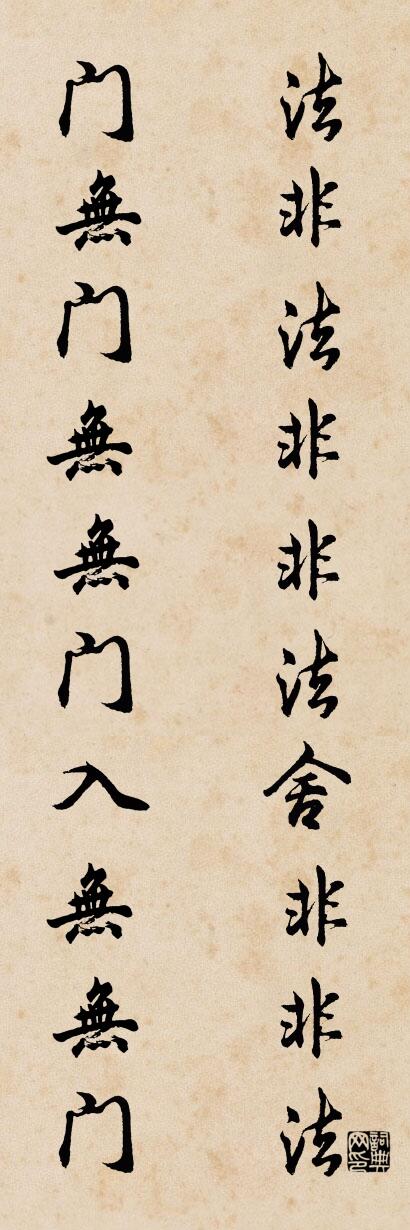 法非法非非法舍非非法
门無门無無门入無無门
詞典网印